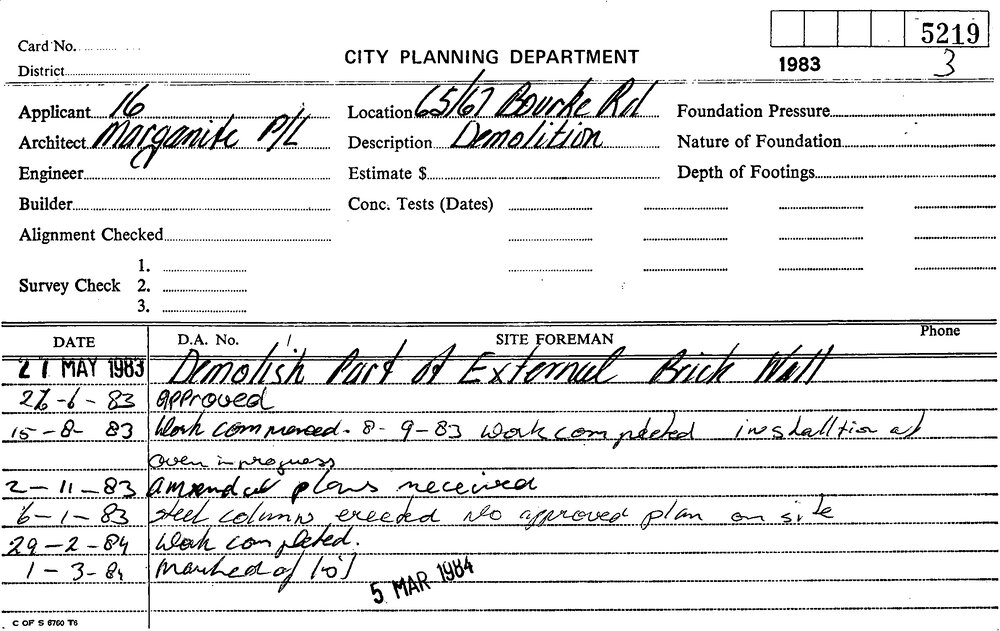 5219
Card No.
CITY PLANNING DEPARTMENT
1983
3
District
Applicant 16
Location 65/67 Bourke Rd
Foundation Pressure
Architect Marganite P/L
Description Demolition
Nature of Foundation
Engineer
Estimate $
Depth of Footings
Builder
Conc. Tests (Dates)
Alignment Checked
Survey Check
1.
2.
3.
DATE
D.A. No.
SITE FOREMAN
Phone
27 MAY 1983 Demolish Part of External Brick Wall
-6-83 approved
15-8-83 Work commenced. 8-9-83 work completed installtion of
oven in progress
2-11-83 amended plans received
6-1-83 steel columns erected No approved plan on site
29-2-84 Work completed.
1-3-84 Marked of
5 MAR 1984
C OF S 6760 T6